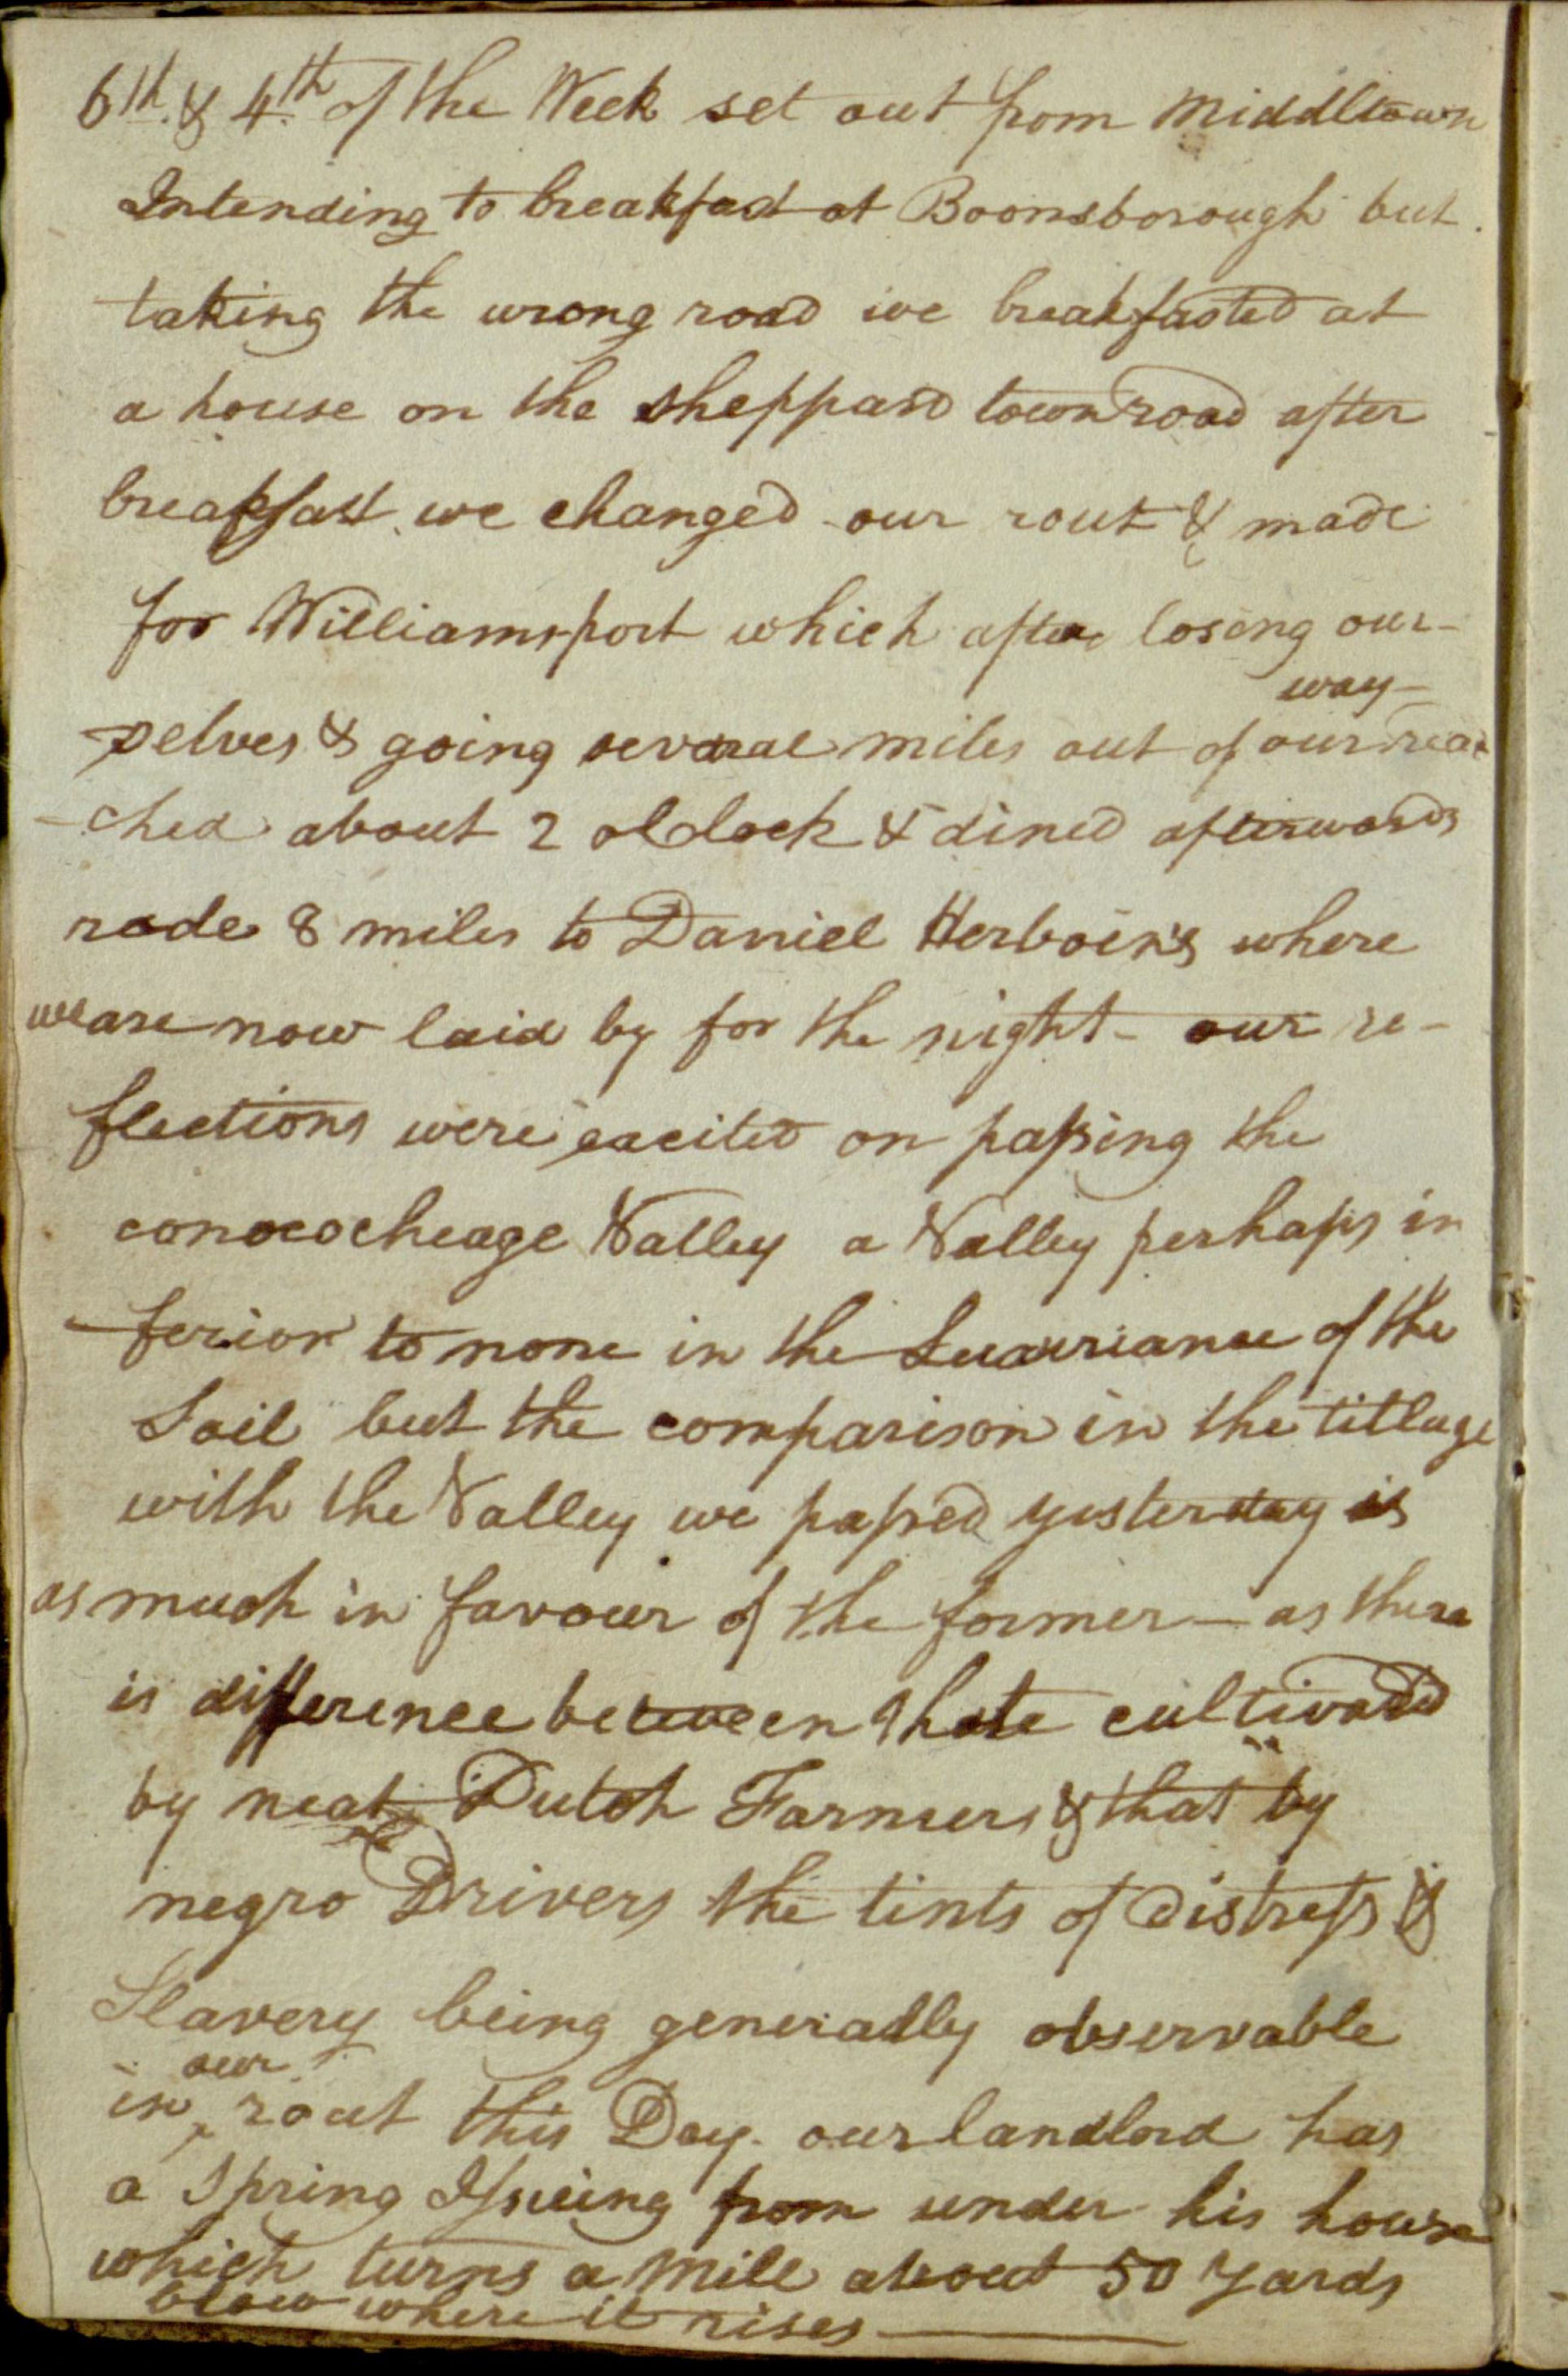 6th. & 4th. of the Week set out from Middltown
Intending to breakfast at Boonsborough but
taking the wrong road we breakfasted at
a house on the Sheppard town road after
breakfast we changed our rout & made
for Williamsport which after losing our-
selves & going several miles out of our way rea-
-ched about 2 oClock & dined afterwards
rode 8 miles to Daniel Herboins where
we are now laid by for the night - our re-
flections were excited on passing the
conococheage Valley a Valley perhaps in
-ferior to none in the Luxuriance of the
Soil but the comparison in the tillage
with the Valley we passed yesterday is
as much in favour of the former - as there
is difference between that cultivated
by neat Dutch Farmers & that by
negro Drivers the tints of Distress &
Slavery being generally observable
in our rout this Day. our landlord has
a Spring Issuing from under his house
which turns a Mill about 50 Yards
below where it rises